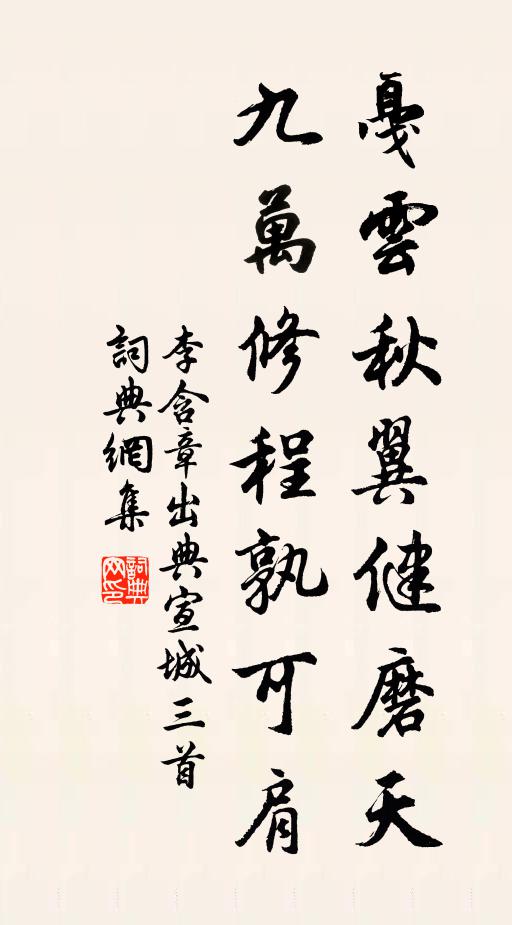 戛雲秋翼健磨天
九萬修程孰可肩
李含章出典宣城三首
詞典網集
詞典网印